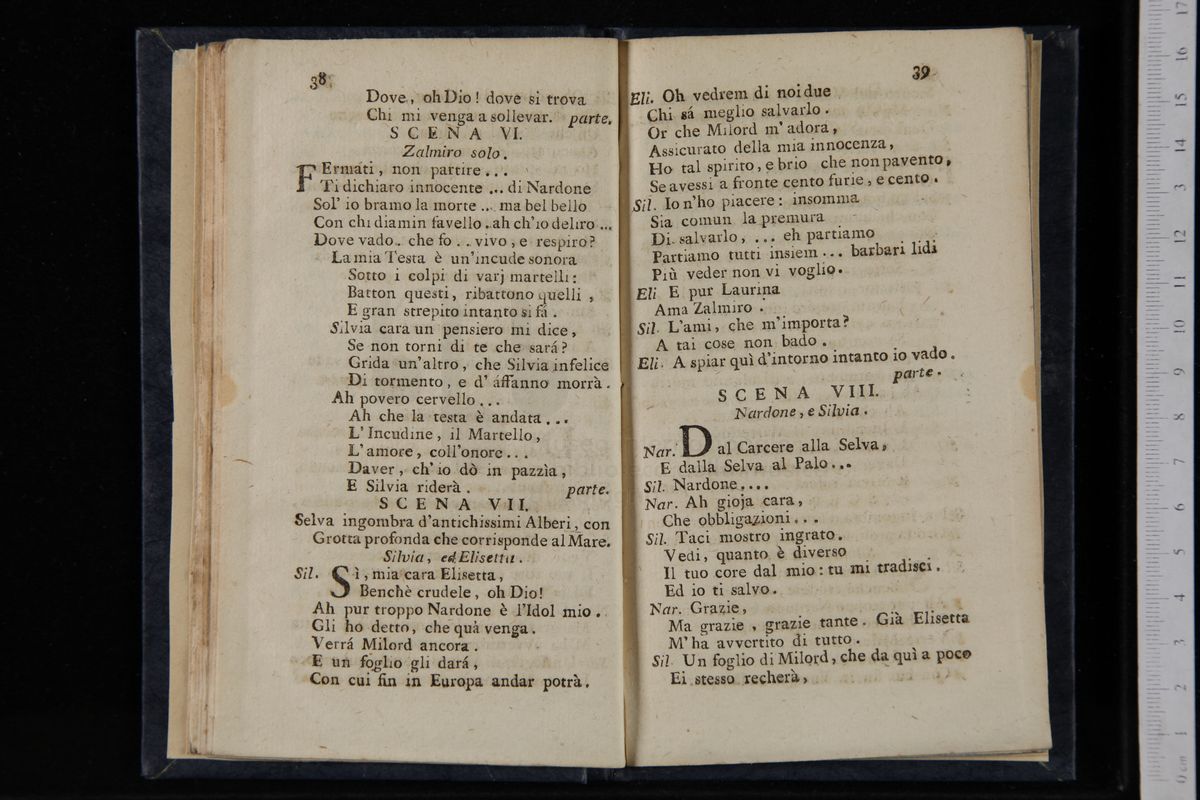 38
Dove, oh Dio! dove si trova
Chi mi venga a sollevar. parte.
SCENA VI.
Zalmiro solo.
FErmati, non partire...
Ti dichiaro innocente ... di Nardone
Sol' io bramo la morte ... ma bel bello
Con chi diamin favello.. ah ch'io deliro ...
Dove vado.. che fo .. vivo, e respiro?
La mia Testa è un'incude sonora
Sotto i colpi di varj martelli:
Batton questi, ribattono quelli,
E gran strepito intanto si fà.
Silvia cara un pensiero mi dice,
Se non torni di te che sará?
Grida un'altro, che Silvia infelice
Di tormento, e d' áffanno morrà.
Ah povero cervello...
Ah che la testa è andata...
L'Incudine, il Martello,
L'amore, coll'onore...
Daver, ch'io dò in pazzìa,
E Silvia riderà. parte.
SCENA VII.
Selva ingombra d'antichissimi Alberi, con
Grotta profonda che corrisponde al Mare.
Silvia, ed Elisetta.
Sil. Sì, mia cara Elisetta,
Benchè crudele, oh Dio!
Ah pur troppo Nardone è l'Idol mio.
Gli ho detto, che quà venga.
Verrá Milord ancora.
E un foglio gli dará,
Con cui fin in Europa andar potrà.
39
Eli. Oh vedrem di noi due
Chi sá meglio salvarlo.
Or che Milord m'adora,
Assicurato della mia innocenza,
Ho tal spirito, e brio che non pavento,
Se avessi a fronte cento furie, e cento.
Sil. Io n'ho piacere: insomma
Sia comun la premura
Di salvarlo, ... eh partiamo
Partiamo tutti insiem... barbari lidi
Più veder non vi voglio.
Eli E pur Laurina
Ama Zalmiro.
Sil. L'ami, che m'importa?
A tai cose non bado.
Eli. A spiar quì d'intorno intanto io vado.
parte.
SCENA VIII.
Nardone, e Silvia.
Nar. Dal Carcere alla Selva,
E dalla Selva al Palo...
Sil. Nardone....
Nar. Ah gioja cara,
Che obbligazioni...
Sil. Taci mostro ingrato.
Vedi, quanto è diverso
Il tuo core dal mio: tu mi tradisci.
Ed io ti salvo.
Nar. Grazie,
Ma grazie, grazie tante. Già Elisetta
M'ha avvertito di tutto.
Sil Un foglio di Milord, che da quì a poco
Ei stesso recherà,
0 cm 1 2 3 4 5 6 7 8 9 10 11 12 13 14 15 16 17